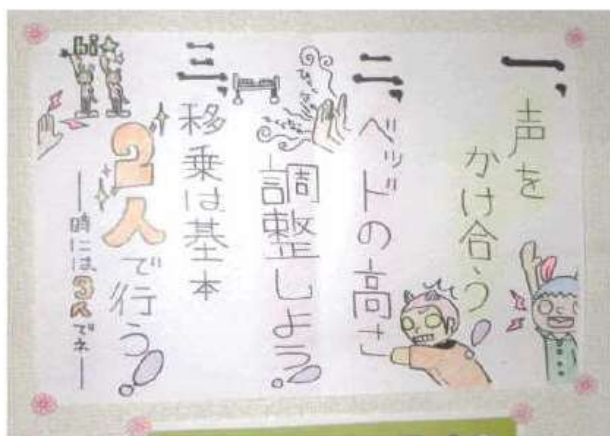 一、
声を
かけ合う!
二、
ベッドの高さ
調整しよう!
三、
移乗は基本
2人で行う!
―時には3人でネ―
hi☆